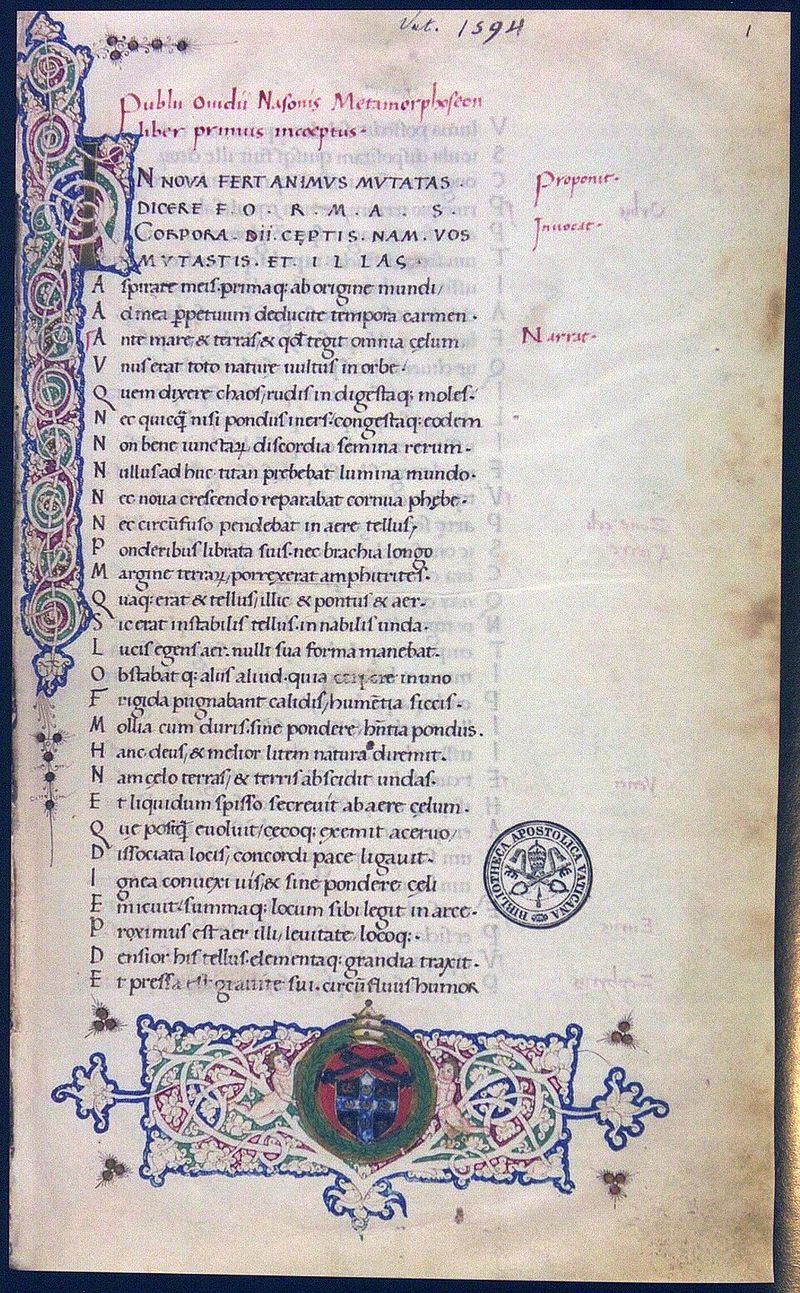 Vat. 1594
1
Publii Ouidii Nasonis Metamorphoseon
liber primus incoeptus·
IN NOVA FERT ANIMVS MVTATAS
Proponit·
DICERE F. O. R. M. A. S
CORPORA· DII· CĘPTIS· NAM· VOS
Inuocat·
MVTASTIS· ET· ILLAS
A spirate meis· prima q: ab origine mundi/
A d mea ꝑpetuum deducite tempora carmen·
A nte mare & terras/ & qđ tegit omnia cęlum
Narrat·
V nus erat toto nature uultus in orbe·
Q uem dixere chaos/ rudis in digesta q: moles·
N ec quicq̄ nisi pondus iners· congesta q: eodem
N on bene iunctaꝝ discordia semina rerum·
N ullus ad huc titan prebebat lumina mundo·
N ec noua crescendo reparabat cornua phębe·
N ec circūfuso pendebat in aere tellus·
P onderibus librata suis· nec brachia longo
M argine terraꝝ porrexerat amphitrites·
Q uaq: erat & tellus/ illic & pontus & aer·
S ic erat instabilis tellus· in nabilis unda·
L ucis egens aer· nulli sua forma manebat·
O bstabat q: aliis aliud· quia corpore in uno
F rigida pugnabant calidis/ humētia siccis·
M ollia cum duris· sine pondere hn̄tia pondus.
H anc deus/ & melior litem natura diremit·
N am cęlo terras/ & terris abscidit undas·
E t liquidum spisso secreuit ab aere cęlum·
Q ue postq̄ euoluit/ cecoq: exemit aceruo/
D issociata locis/ concordi pace ligauit·
I gnea conuexi uis/ & sine pondere cęli
E micuit· summaq: locum sibi legit in arce·
P roximus est aer illi/ leuitate locoq:·
D ensior his tellus· elementaq: grandia traxit·
E t pressa est grauite sui· circūfluus humor
BIBLIOTHECA APOSTOLICA VATICANA